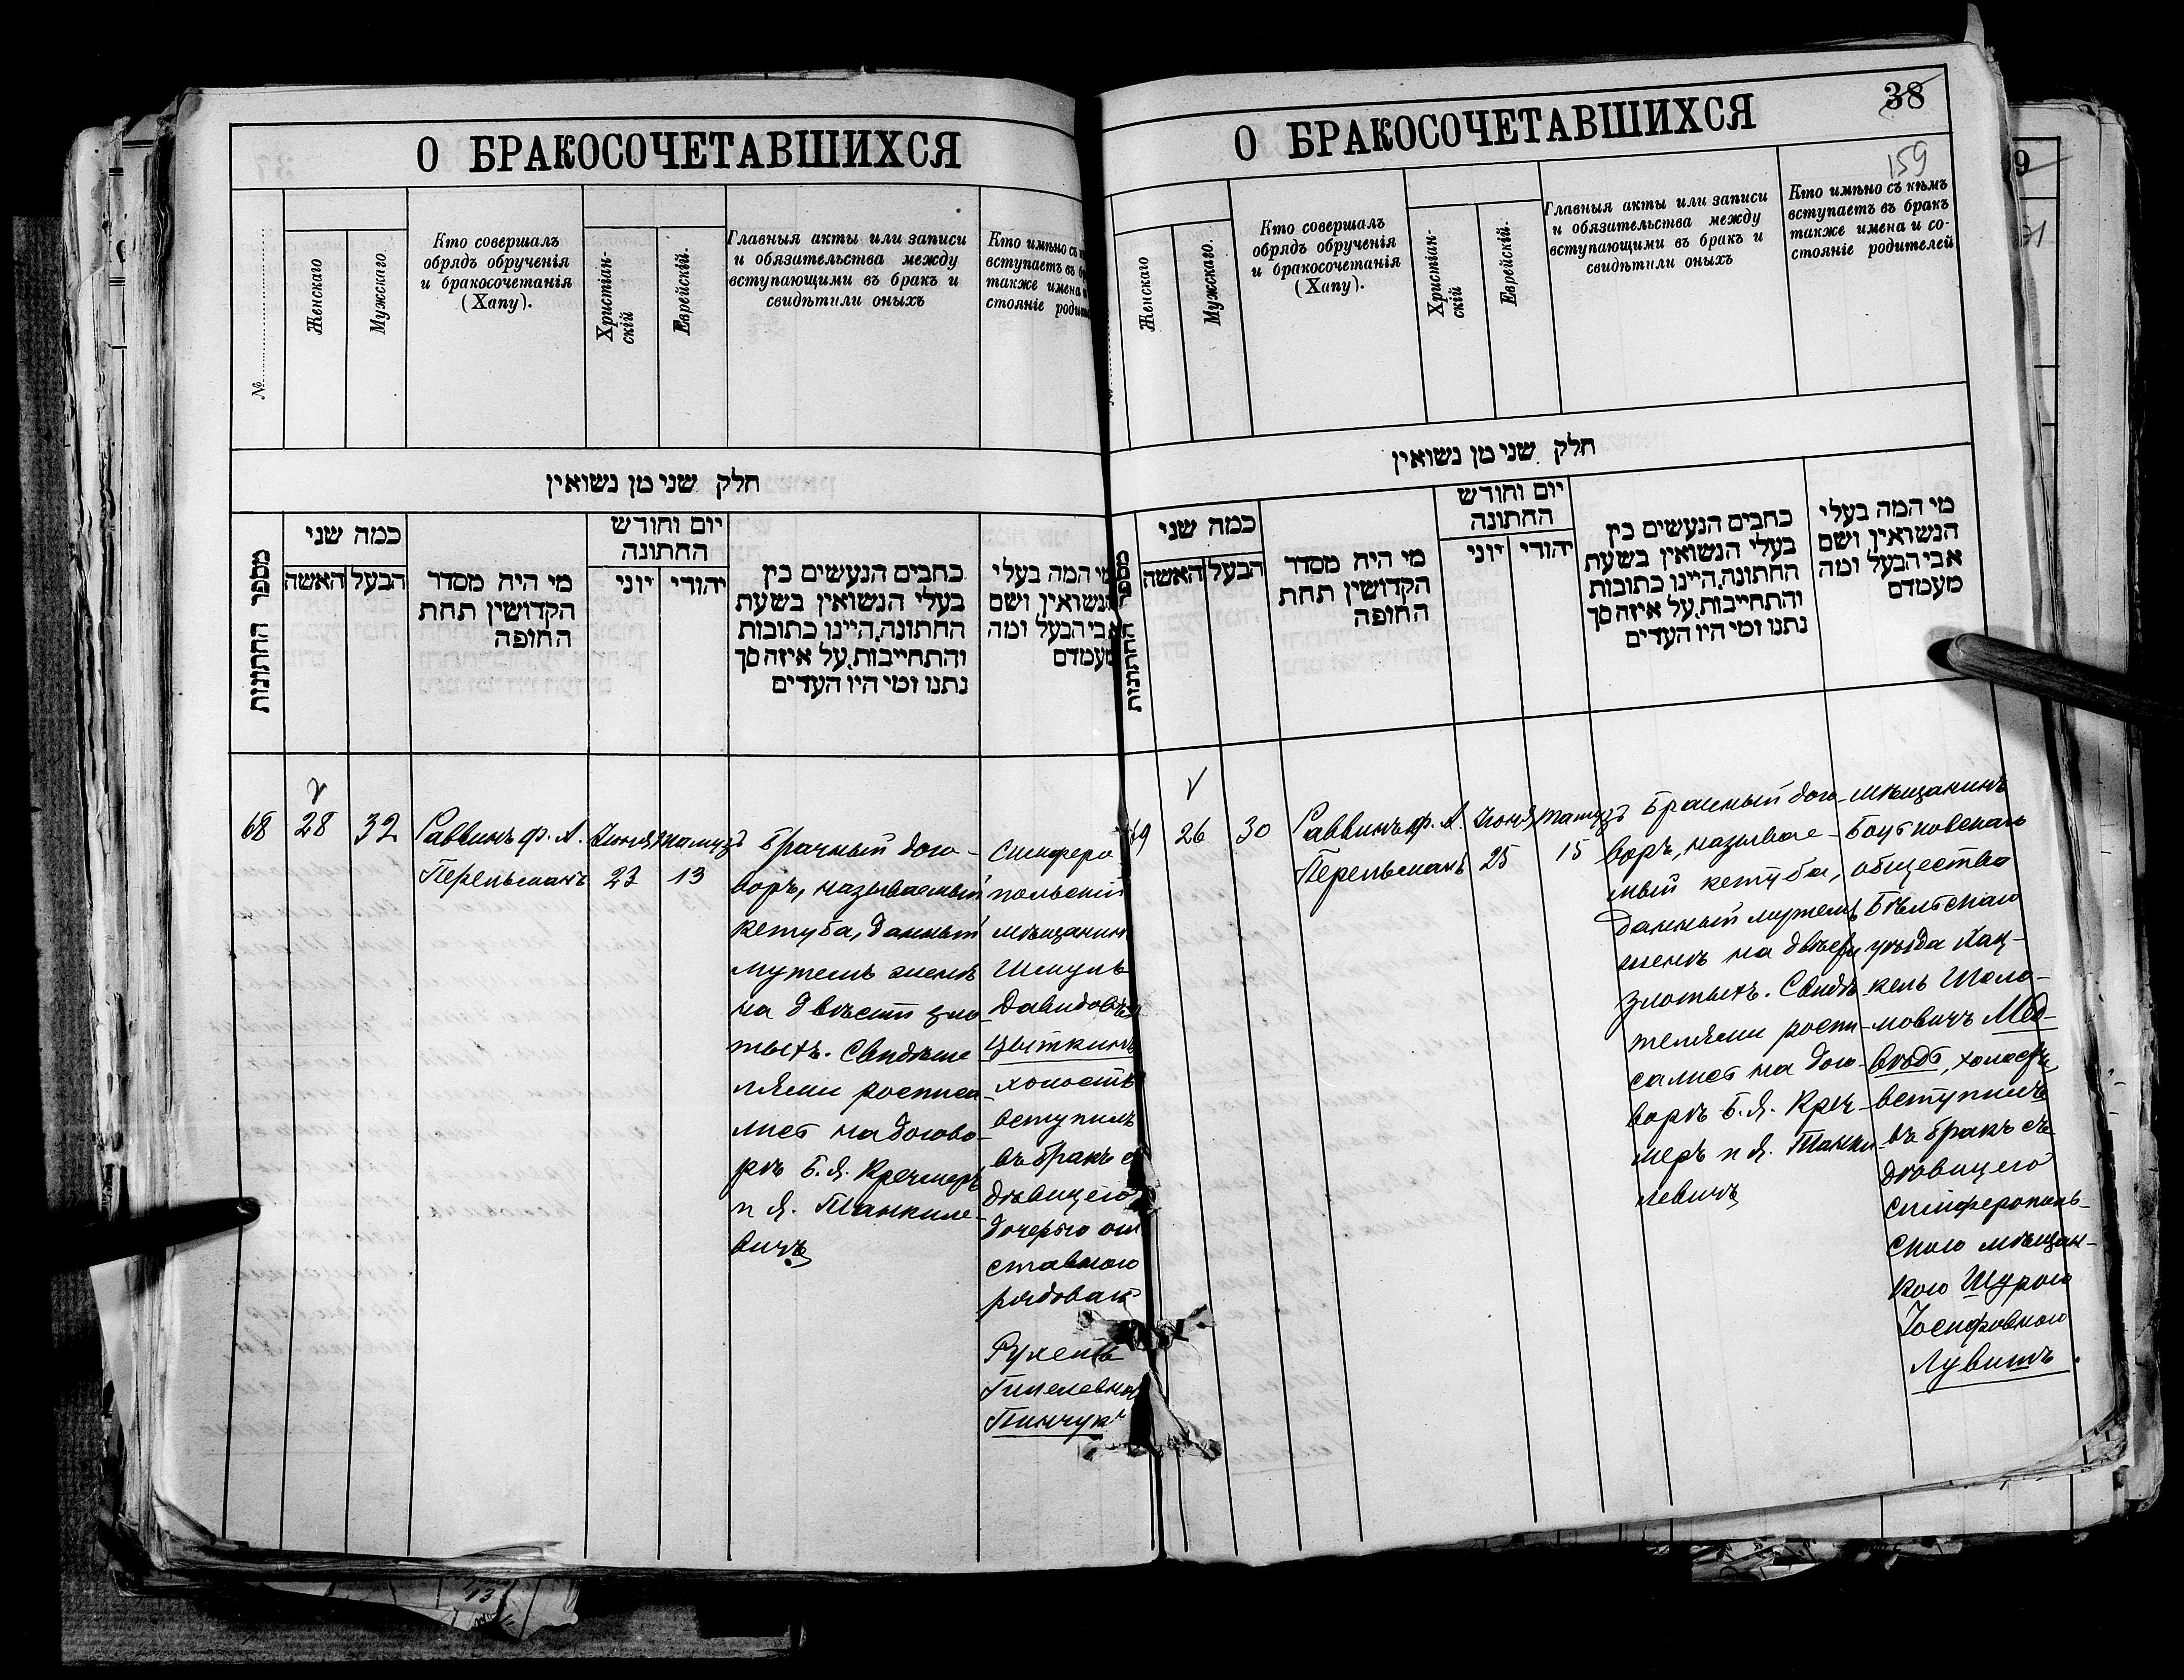 О БРАКОСОЧЕТАВШИХСЯ
№
Женскаго
Мужскаго
Кто совершалъ
обрядъ обрученія
и бракосочетанія
(Хапу).
Христіан-
скій
Еврейскій.
Главныя акты или записи
и обязательства между
вступающими въ бракъ и
свидѣтили оныхъ
Кто имѣно съ
вступаетъ въ
также имена
стояніе
חלק שני מן נשואין
מספר החתונות
כמה שני
האשה
הבעל
מי היה מסדר
הקדושין תחת
החופה
יום וחודש
החתונה
יוני
יהודי
כתבים הנעשים בין
בעלי הנשואין בשעת
החתונה, היינו כתובות
והתחייבות, על איזה סך
נתנו ומי היו העדים
מי המה בעלי
הנשואין ושם
אבי הבעל ומה
מעמדם
68
28
32
Раввинъ Ф. А.
Перельманъ
Іюня
23
Тамузъ
13
Брачный дого-
воръ, называемый
кетуба, данный
мужемъ женѣ
на двѣсти зло-
тыхъ. Свидѣте
лями росписа
лисъ на догово-
рѣ Б. Я. Кречмеръ
и Я. Танкиле-
вичъ
Симферо
польскій
мѣщанинъ
Шмуль
Давидовъ
Цыткинъ
холостъ
вступилъ
въ бракъ с
дѣвицею
дочерью от
ставного
рядоваго
Рухель
Гилелевна
Пинчукъ
О БРАКОСОЧЕТАВШИХСЯ
38
159
Женскаго
Мужскаго.
Кто совершалъ
обрядъ обрученія
и бракосочетанія
(Хапу).
Христіан-
скій
Еврейскій.
Главныя акты или записи
и обязательства между
вступающими въ бракъ и
свидѣтили оныхъ
Кто имѣно съ кѣмъ
вступаетъ въ бракъ
также имена и со-
стояніе родителей
חלק שני מן נשואין
כמה שני
האשה
הבעל
מי היה מסדר
הקדושין תחת
החופה
יום וחודש
החתונה
יוני
יהודי
כתבים הנעשים בין
בעלי הנשואין בשעת
החתונה, היינו כתובות
והתחייבות, על איזה סך
נתנו ומי היו העדים
מי המה בעלי
הנשואין ושם
אבי הבעל ומה
מעמדם
69
26
30
Раввинъ Ф. А.
Перельманъ
Іюня
25
Тамузъ
15
Брачный дого-
воръ, называе-
мый кетуба,
данный мужемъ
женѣ на двѣсти
злотыхъ. Свидѣ
телями роспи-
салисъ на дого-
ворѣ Б. Я. Креч-
меръ и Я. Танки
левичъ
мѣщанинъ
общества
Бѣлтскаго
уѣзда Хац-
кель Шоло-
мовичъ Мед-
вѣдъ, холостъ,
вступилъ
въ бракъ съ
дѣвицею
симферополь-
скою мѣщан-
кою Шурою
Іосифовною
Лувишъ.